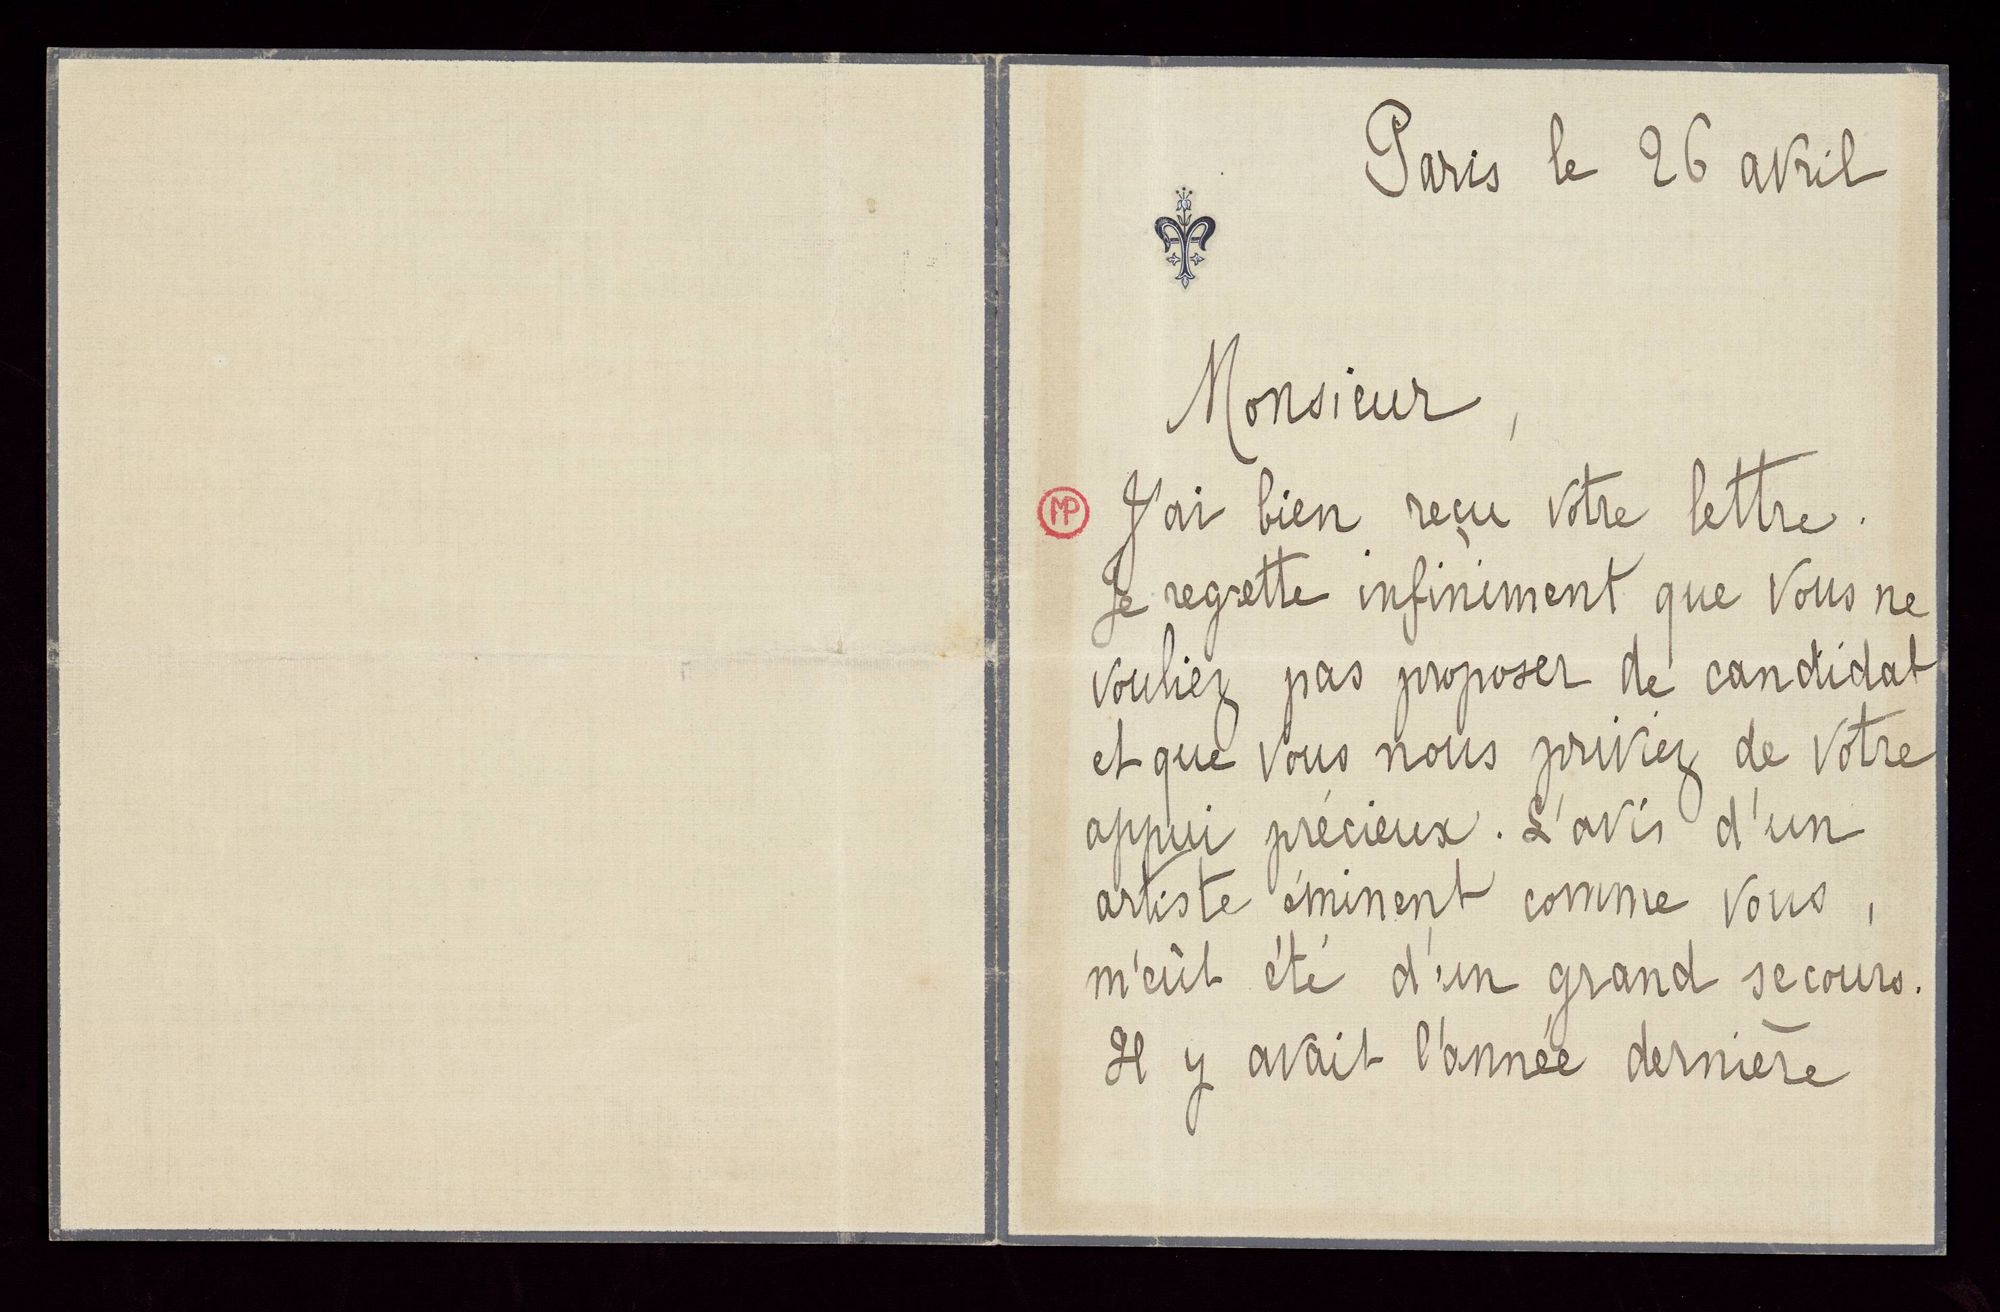 Paris le 26 avril
Monsieur,
MP
J'ai bien reçu votre lettre.
Je regrette infiniment que vous ne
vouliez pas proposer de candidat
et que vous nous priviez de votre
appui précieux. L'avis d'un
artiste éminent comme vous,
m'eût été d'un grand secours.
Il y avait l'année dernière